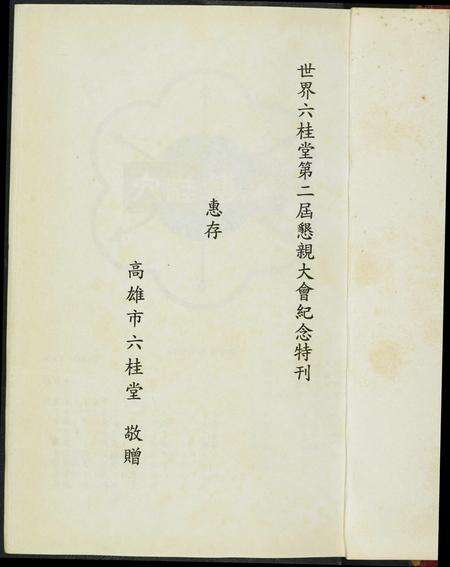 世界六桂堂第二屆懇親大會紀念特刊
惠存
高雄市六桂堂 敬贈